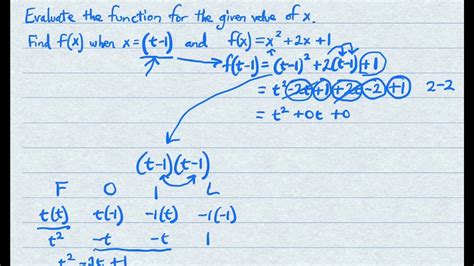 Evaluate the function for the given value of x.
Find f(x) when x=(t-1) and f(x)=x²+2x+1
f(t-1)=(t-1)²+2(t-1)+1
=t²-2t+1+2t-2+1 2-2
=t²+0t+0
(t-1)(t-1)
F O I L
t(t) t(-1) -1(t) -1(-1)
t² -t -t 1
t²-2t+1